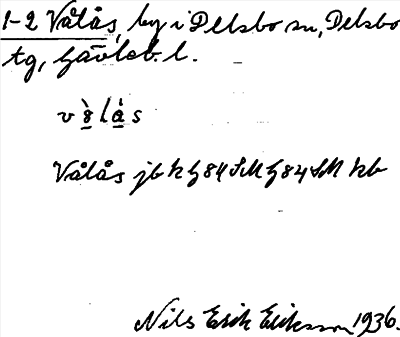 1-2 Vålås, by i Delsbo sn, Delsbo
tg, Gävleb. l.
Vålås jb k G84 SM G84 SM kb
Nils Erik Eriksson 1936.